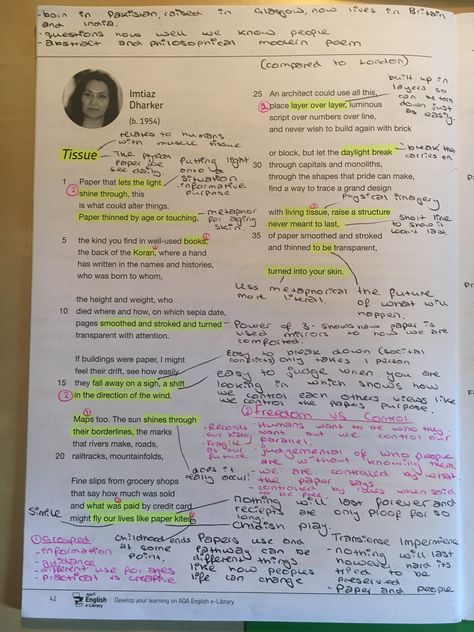 - born in Pakistan, raised in Glasgow, now lives in Britain
and India.
- questions how well we know people
- abstract and philosophical modern poem
(compared to London)
Imtiaz
Dharker
(b. 1954)
relates to humans
with muscle tissue
Tissue
- The physical
paper we
see daily.
putting light
onto a
situation
- informative
purpose
1 Paper that lets the light
shine through, this
is what could alter things.
Paper thinned by age or touching,
- metaphor
for aging
skin.
5 the kind you find in well-used books,
the back of the Koran, where a hand
has written in the names and histories,
who was born to whom,
the height and weight, who
10 died where and how, on which sepia date,
pages smoothed and stroked and turned
transparent with attention.
If buildings were paper, I might
feel their drift, see how easily
15 they fall away on a sigh, a shift
in the direction of the wind.
Maps too. The sun shines through
their borderlines, the marks
that rivers make, roads,
20 railtracks, mountainfolds,
Fine slips from grocery shops
that say how much was sold
and what was paid by credit card
might fly our lives like paper kites.
25 An architect could use all this,
place layer over layer, luminous
script over numbers over line,
and never wish to build again with brick
built up in
layers so
can be torn
down just
as easily.
or block, but let the daylight break
30 through capitals and monoliths,
through the shapes that pride can make,
find a way to trace a grand design
- break the
carries on
Physical imagery
with living tissue, raise a structure
never meant to last,
35 of paper smoothed and stroked
and thinned to be transparent,
short line
to show it
won't last.
turned into your skin.
less metaphorical
more literal.
the future
of what will
happen.
- Power of 3 - shows how paper is
used mirrors to how we are
comforted.
easy to break down (social
conflicts) only takes 1 person
easy to judge when you are
looking in which shows how
we control each others views like
we control the papers purpose.
② freedom vs control
- Records
our history
- Humans want to be who they
want but we control our
parallel.
- Fragile
as your
future
- judgemental of who people
are without knowing them
- we are controlled by what
the paper says
- controlled by rules when said
to be free
does it
really occur?
nothing will last forever and
reciepts are only proof for so
long.
Simile
childish play.
① Grouped
- information
- guidance
- different use for ages
- practical vs creative
childhood ends
at some
point.
Papers use and
pathway can be
different things
like how peoples
life can change
Transiense Impermience
- nothing will last
however hard its
tried to be
preserved
- Paper and people
42
AQA
English
e-Library
Develop your learning on AQA English e-Library